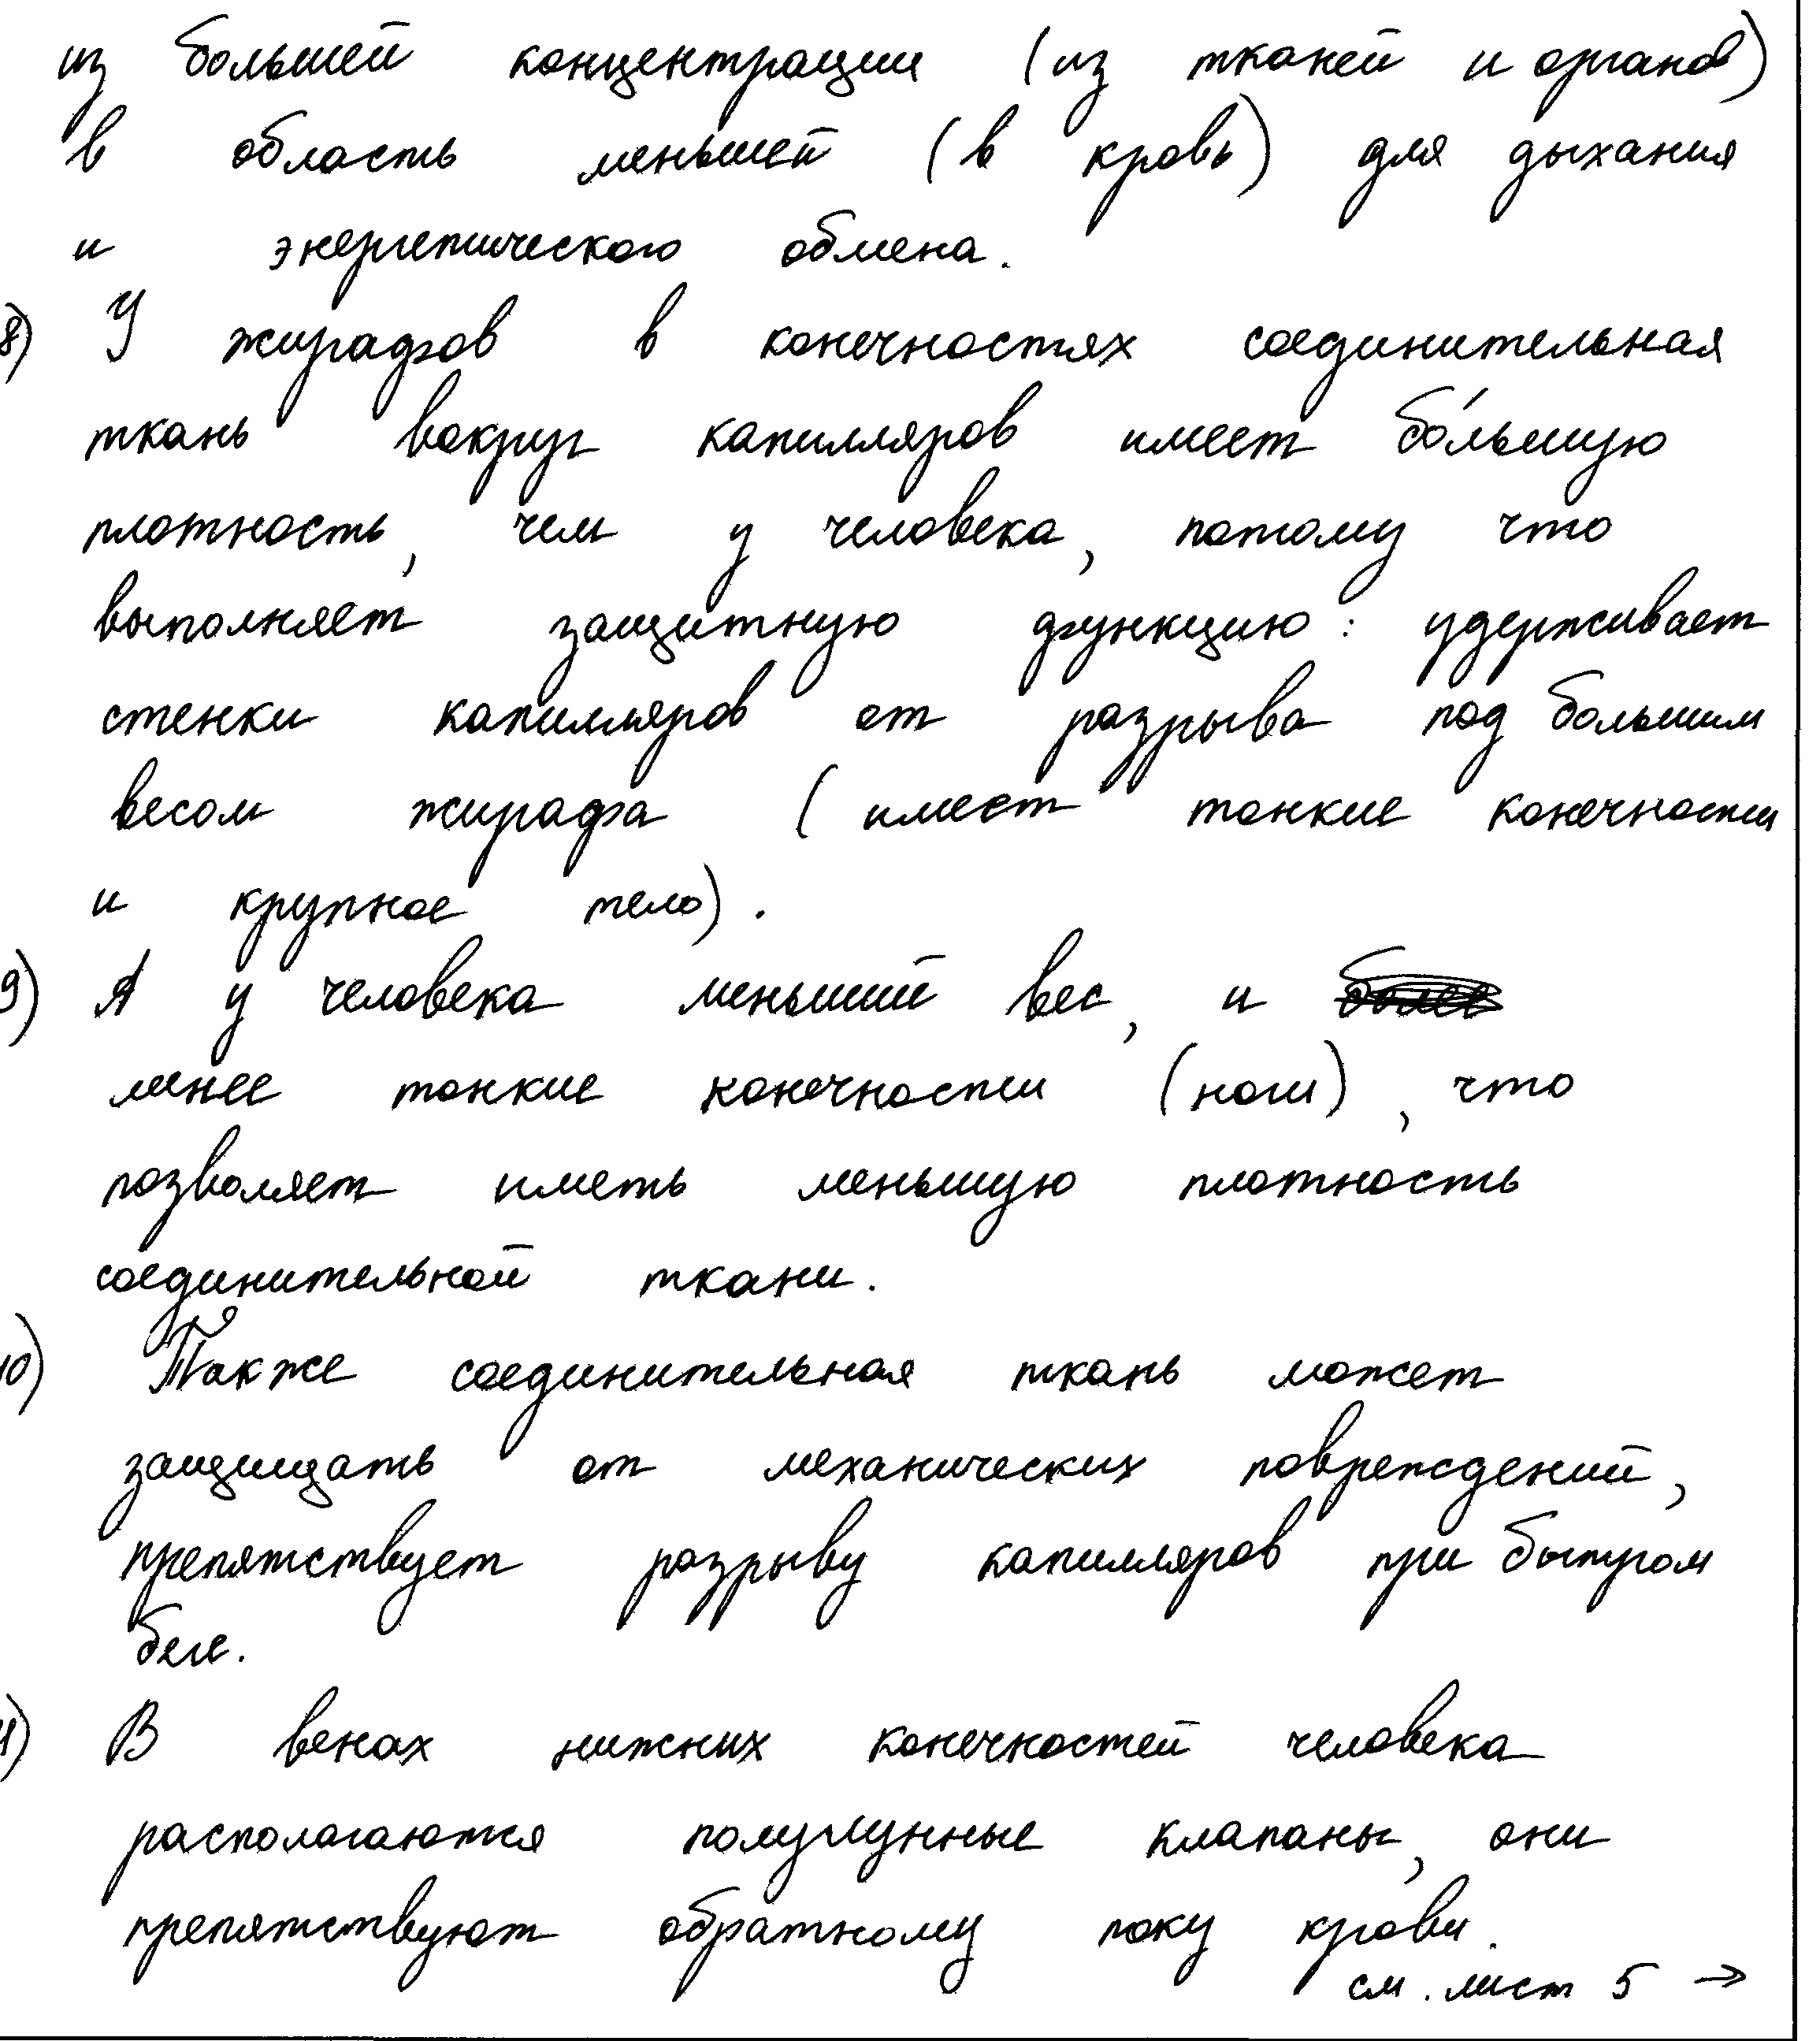 из большей концентрации (из тканей и органов)
в область меньшей (в кровь) для дыхания
и энергетического обмена.
8) У жирафов в конечностях соединительная
ткань вокруг капилляров имеет бо́льшую
плотность, чем у человека, потому что
выполняет защитную функцию: удерживает
стенки капилляров от разрыва под большим
весом жирафа (имеет тонкие конечности
и крупное тело).
9) А у человека меньший вес, и более
менее тонкие конечности (ноги), что
позволяет иметь меньшую плотность
соединительной ткани.
10) Также соединительная ткань может
защищать от механических повреждений,
препятствует разрыву капилляров при быстром
беге.
11) В венах нижних конечностей человека
располагаются полулунные клапаны, они
препятствуют обратному току крови.
см. лист 5 →